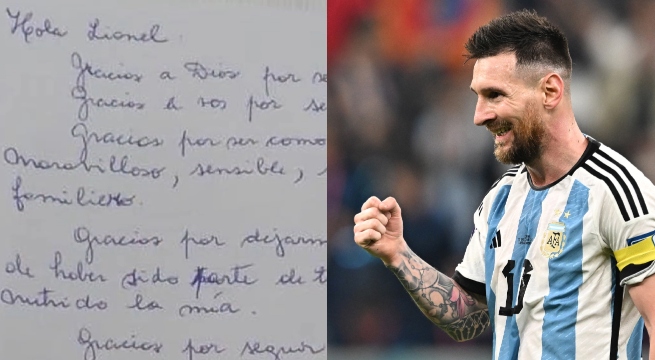 Hola Lionel.
Gracias a Dios por
Gracias a vos por
Gracias por ser como
maravilloso, sensible,
familiero.
Gracias por
de haber sido parte de
nutrido la mía.
Gracias por seguir
AFA